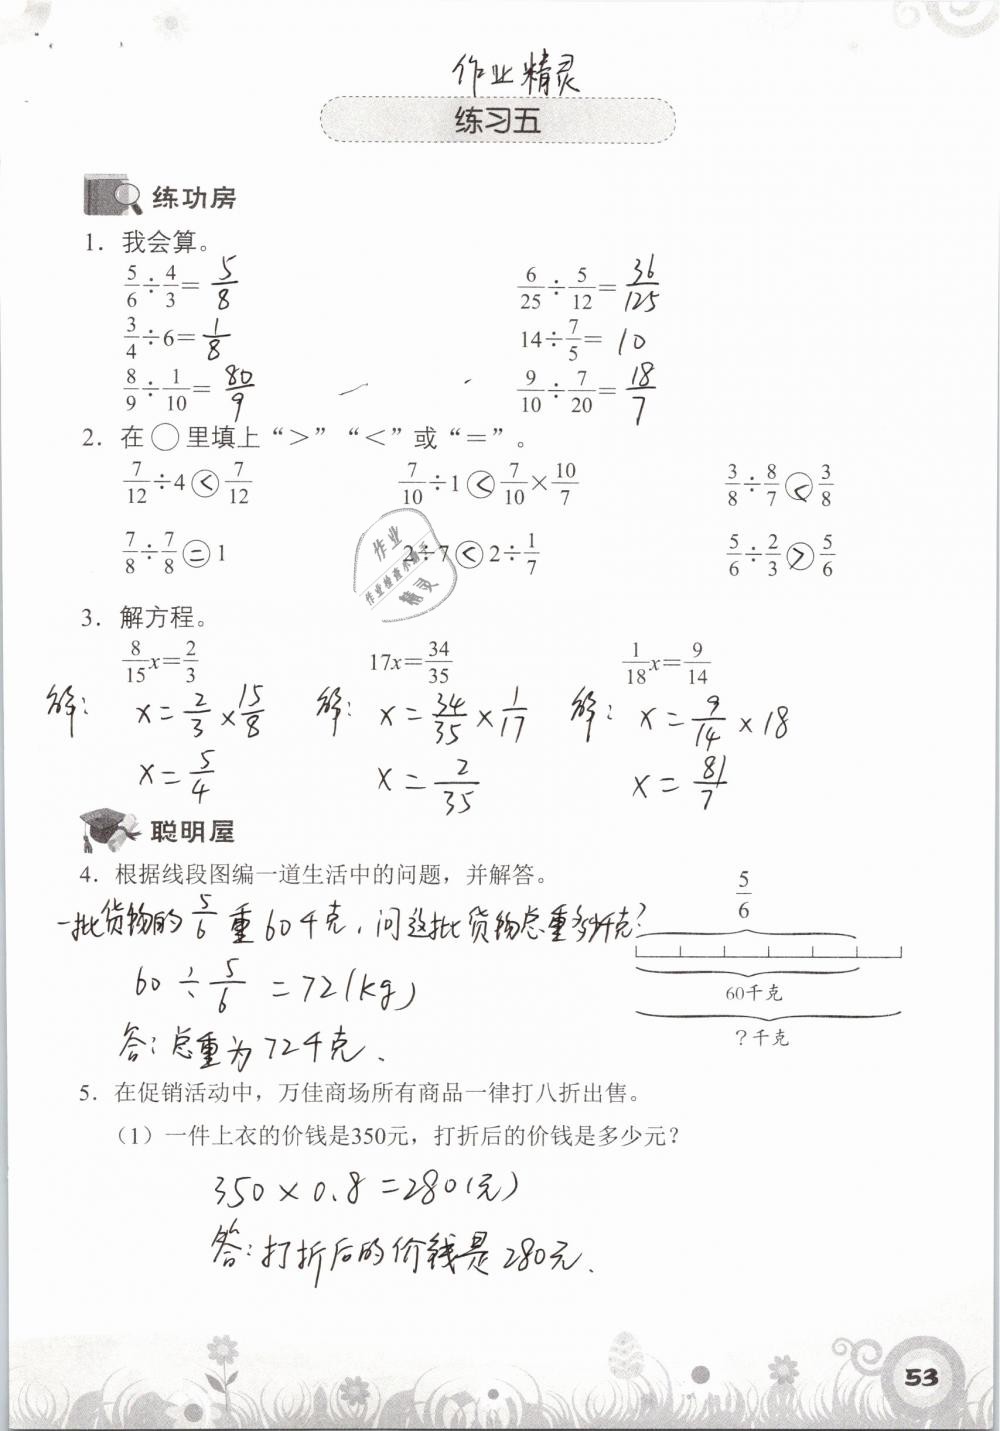 作业精灵
练习五
练功房
1. 我会算。
5/6÷4/3= 5/8  6/25÷5/12= 36/125
3/4÷6= 1/8  14÷7/5= 10
8/9÷1/10= 80/9  9/10÷7/20= 18/7
2. 在○里填上“>”“<”或“=”。
7/12÷4<7/12  7/10÷1<7/10×10/7  3/8÷8/7<3/8
7/8÷7/8=1  2÷7<2÷1/7  5/6÷2/3>5/6
作业
作业检查小助手
精灵
3. 解方程。
8/15x=2/3  17x=34/35  1/18x=9/14
解: x=2/3×15/8  解: x=34/35×1/17  解: x=9/14×18
x=5/4  x=2/35  x=81/7
聪明屋
4. 根据线段图编一道生活中的问题，并解答。
5/6
一批货物的5/6重60千克，问这批货物总重多少千克?
60千克
60÷5/6=72(kg)
?千克
答:总重为72千克.
5. 在促销活动中，万佳商场所有商品一律打八折出售。
（1）一件上衣的价钱是350元，打折后的价钱是多少元?
350×0.8=280(元)
答:打折后的价钱是280元.
53